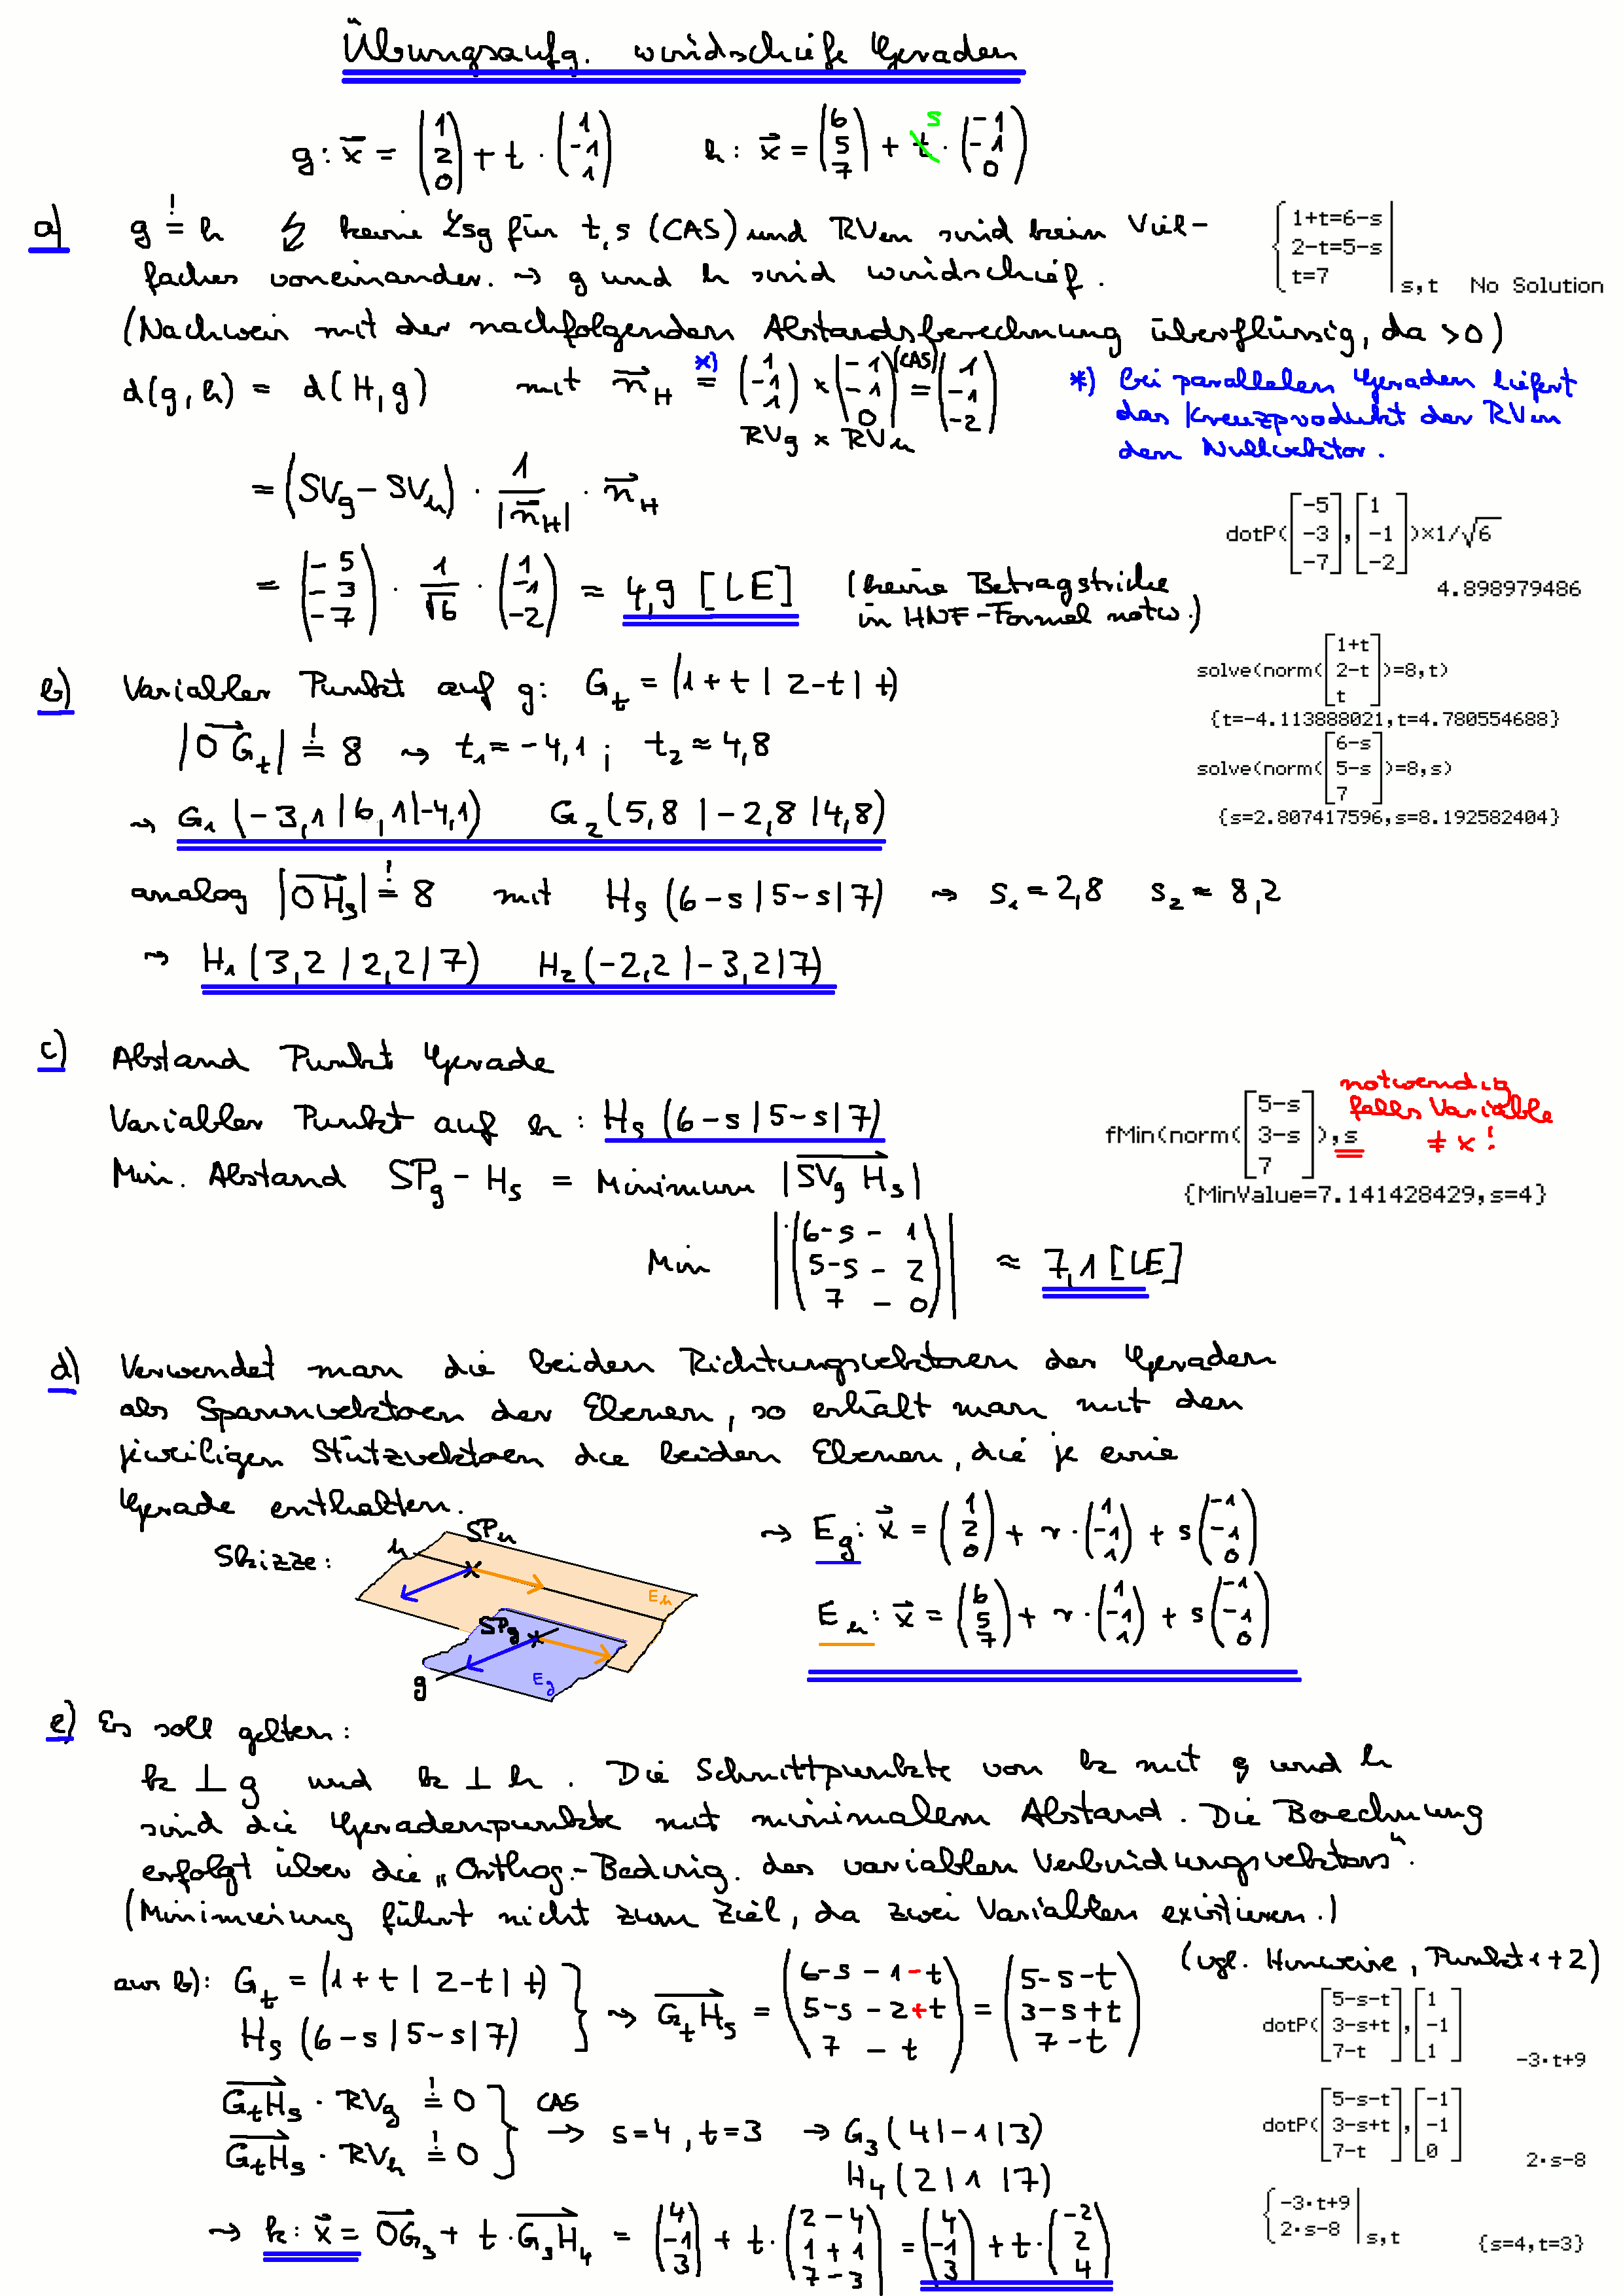 Übungsaufg. windschiefe Geraden
g: x⃗ = (1 2 0) + t · (1 -1 1)   h: x⃗ = (6 5 7) + t s · (-1 -1 0)
a) g =! h ↯ keine Lsg für t,s (CAS) und RVen sind kein Viel-
faches voneinander. ⇝ g und h sind windschief.
{ 1+t=6-s
2-t=5-s
t=7 | s,t No Solution
(Nachweis mit der nachfolgenden Abstandsberechnung überflüssig, da >0)
d(g,h) = d(H,g) mit n⃗_H =*) (1 -1 1) × (-1 -1 0) =(CAS) (1 -1 -2)
RVg × RVh
*) bei parallelen Geraden liefert
das Kreuzprodukt der RVen
den Nullvektor.
= (SVg − SVh) · 1/|n⃗_H| · n⃗_H
= (-5 -3 -7) · 1/√6 · (1 -1 -2) = 4,9 [LE] (keine Betragstriche
in HNF-Formel notw.)
dotP([-5 -3 -7],[1 -1 -2])×1/√6
4.898979486
b) Variabler Punkt auf g: G_t = (1+t | 2-t | t)
|OG_t| =! 8 ⇝ t₁ = -4,1 ; t₂ ≈ 4,8
⇝ G₁ (-3,1 | 6,1 | -4,1)   G₂ (5,8 | -2,8 | 4,8)
solve(norm([1+t 2-t t])=8,t)
{t=-4.113888021,t=4.780554688}
solve(norm([6-s 5-s 7])=8,s)
{s=2.807417596,s=8.192582404}
analog |OH_s| =! 8 mit H_s (6-s | 5-s | 7) ⇝ s₁ = 2,8 s₂ ≈ 8,2
⇝ H₁ (3,2 | 2,2 | 7)   H₂ (-2,2 | -3,2 | 7)
c) Abstand Punkt Gerade
Variabler Punkt auf h: H_s (6-s | 5-s | 7)
Min. Abstand SPg - H_s = Minimum |SVg H_s|
Min |(6-s - 1 5-s - 2 7 - 0)| ≈ 7,1 [LE]
fMin(norm([5-s 3-s 7]),s
{MinValue=7.141428429,s=4}
notwendig
falls Variable
≠ x!
d) Verwendet man die beiden Richtungsvektoren der Geraden
als Spannvektoren der Ebenen, so erhält man mit den
jeweiligen Stützvektoren die beiden Ebenen, die je eine
Gerade enthalten.
Skizze:
h SPh
Eh
SPg
g Eg
⇝ Eg: x⃗ = (1 2 0) + r · (1 -1 1) + s (-1 -1 0)
Eh: x⃗ = (6 5 7) + r · (1 -1 1) + s (-1 -1 0)
e) Es soll gelten:
k ⊥ g und k ⊥ h. Die Schnittpunkte von k mit g und h
sind die Geradenpunkte mit minimalem Abstand. Die Berechnung
erfolgt über die „Orthog.-Beding. des variablen Verbindungsvektors".
(Minimierung führt nicht zum Ziel, da zwei Variablen existieren.)
aus b): G_t = (1+t | 2-t | t)
H_s (6-s | 5-s | 7)
} ⇝ G_tH_s = (6-s-1-t 5-s-2+t 7 - t) = (5-s-t 3-s+t 7-t)
(vgl. Hinweise, Punkt 1+2)
dotP([5-s-t 3-s+t 7-t],[1 -1 1]
-3·t+9
G_tH_s · RVg =! 0
G_tH_s · RVh =! 0
} CAS → s=4, t=3 → G₃ (4 | -1 | 3)
H₄ (2 | 1 | 7)
dotP([5-s-t 3-s+t 7-t],[-1 -1 0]
2·s-8
⇝ k: x⃗ = OG₃ + t · G₃H₄ = (4 -1 3) + t · (2-4 1+1 7-3) = (4 -1 3) + t · (-2 2 4)
{ -3·t+9
2·s-8 | s,t {s=4,t=3}